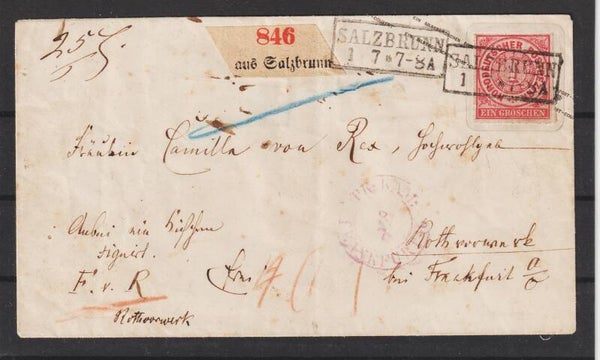 846
aus Salzbrunn
SALZBRUNN
1 7 * 7-8A
SALZBRUNN
NORDDEUTSCHER
EIN GROSCHEN
Fräulein Camilla von Rex, Hochwohlgeb
Anbei ein Kistchen
signirt.
F. v. R
Rothvorwerk
frei
Rothvorwerk
bei Frankfurt a/O